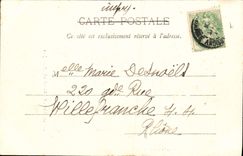 CARTE POSTALE
Ce côté est exclusivement réservé à l'adresse.
Melle Marie
220 gde Rue
Villefranche s. s.
Rhône